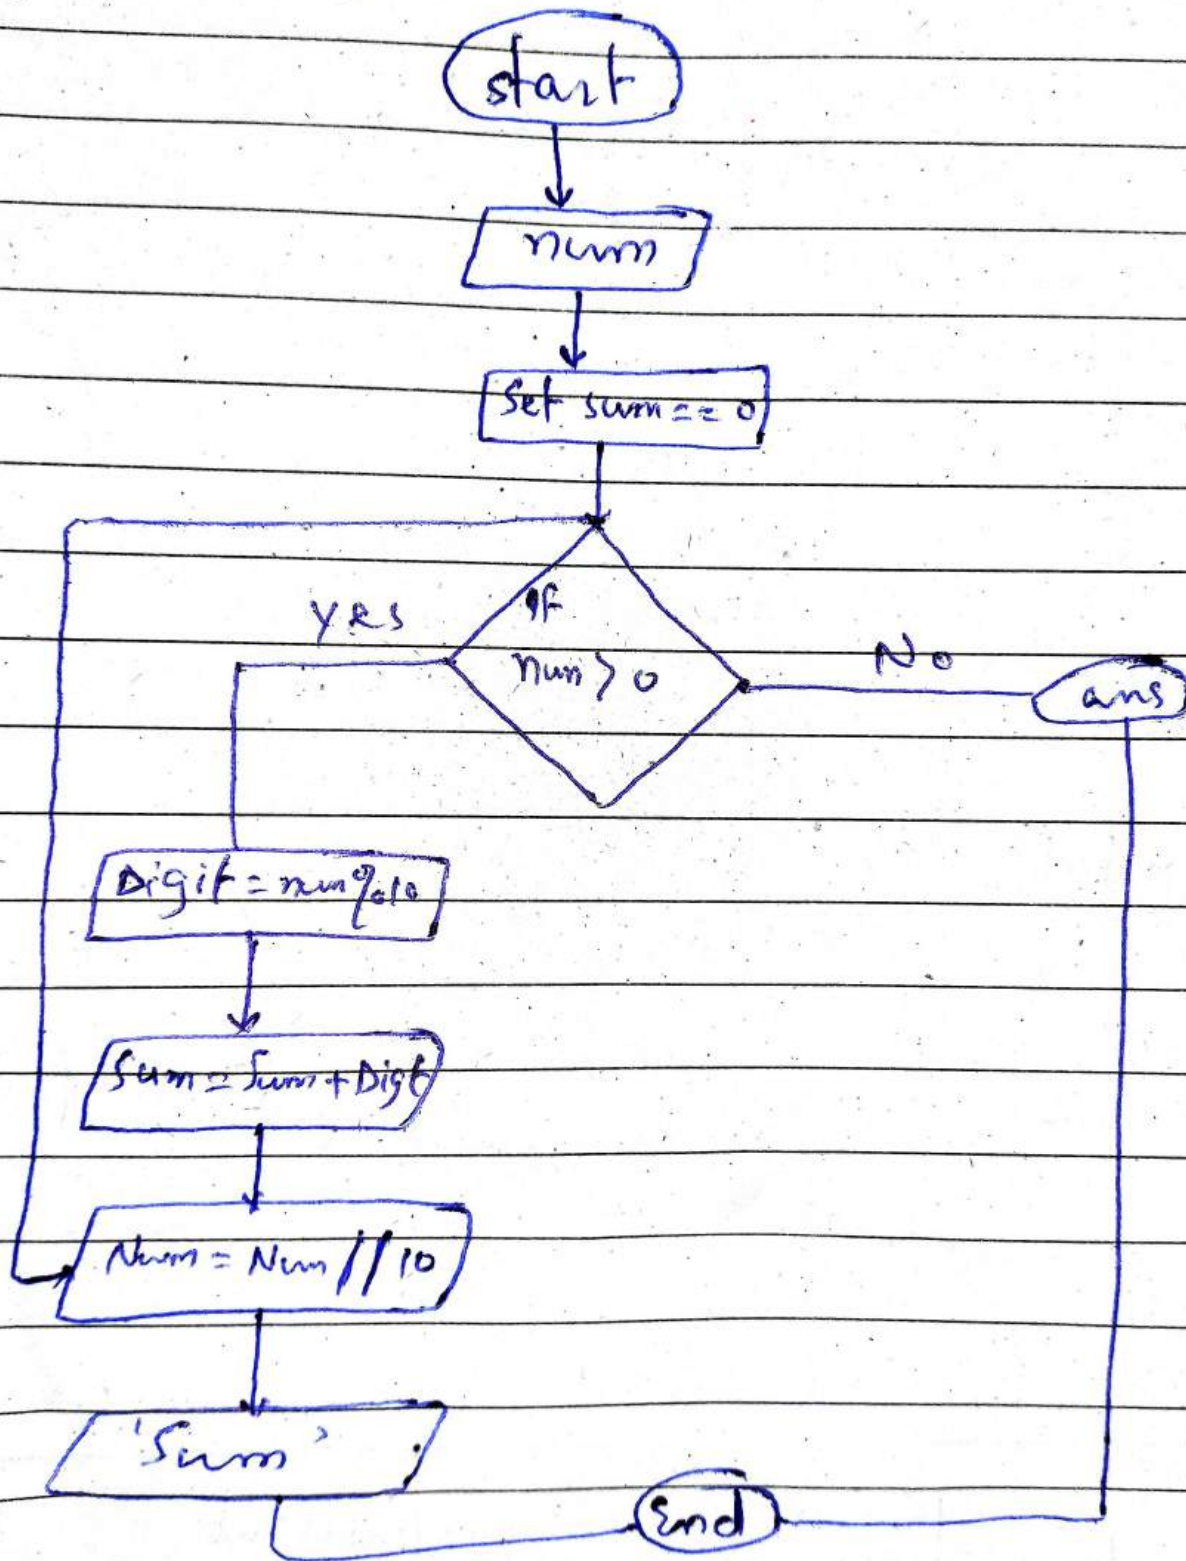 start
num
Set sum == 0
If
num > 0
yes
No
ans
Digit = num%10
Sum = Sum + Digt
Num = Num // 10
'Sum'
End